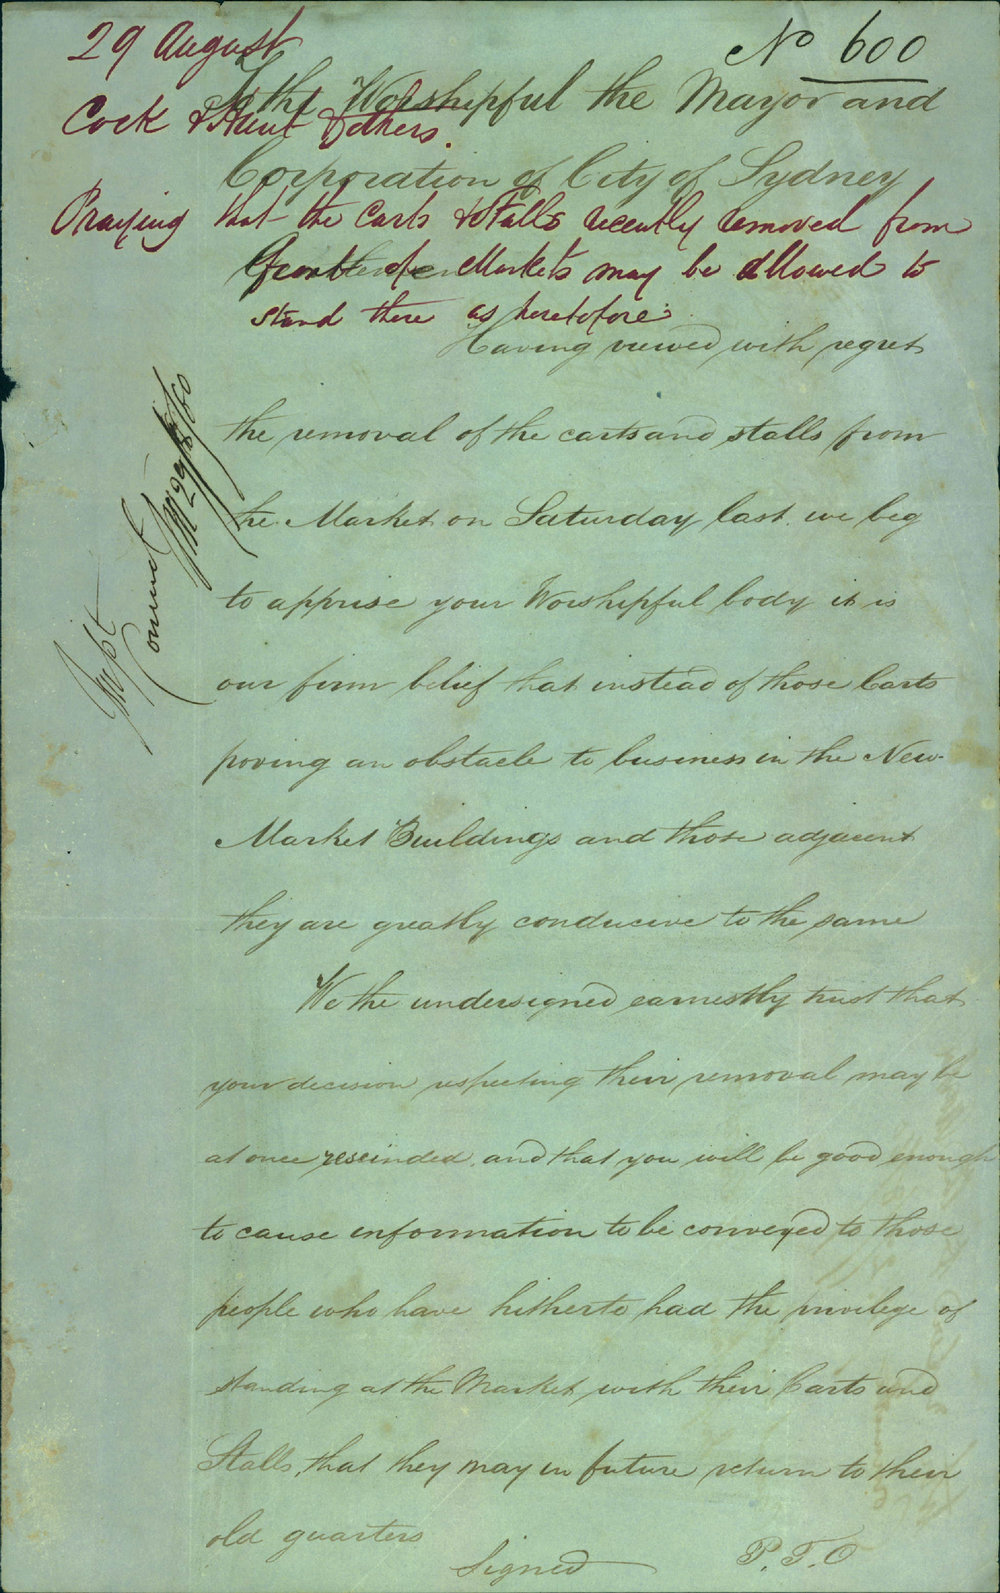 29 August
No 600
To the Worshipful the Mayor and
Cock & Hunt & others.
Corporation of City of Sydney
Praying that the Carts & Stalls recently removed from
front of Markets may be allowed to
stand there as heretofore
Having viewed with regret
the removal of the carts and stalls from
the Market on Saturday last, we beg
to apprise your Worshipful body it is
our firm belief that instead of those Carts
proving an obstacle to business in the New
Market Buildings and those adjacent
they are greatly conducive to the same
We the undersigned earnestly trust that
your decision respecting their removal may be
at once rescinded, and that you will be good enough
to cause information to be conveyed to those
people who have hitherto had the privilege of
standing at the Market with their Carts and
Stalls, that they may in future return to their
old quarters
Signed P.T.O
Council
29/8/60